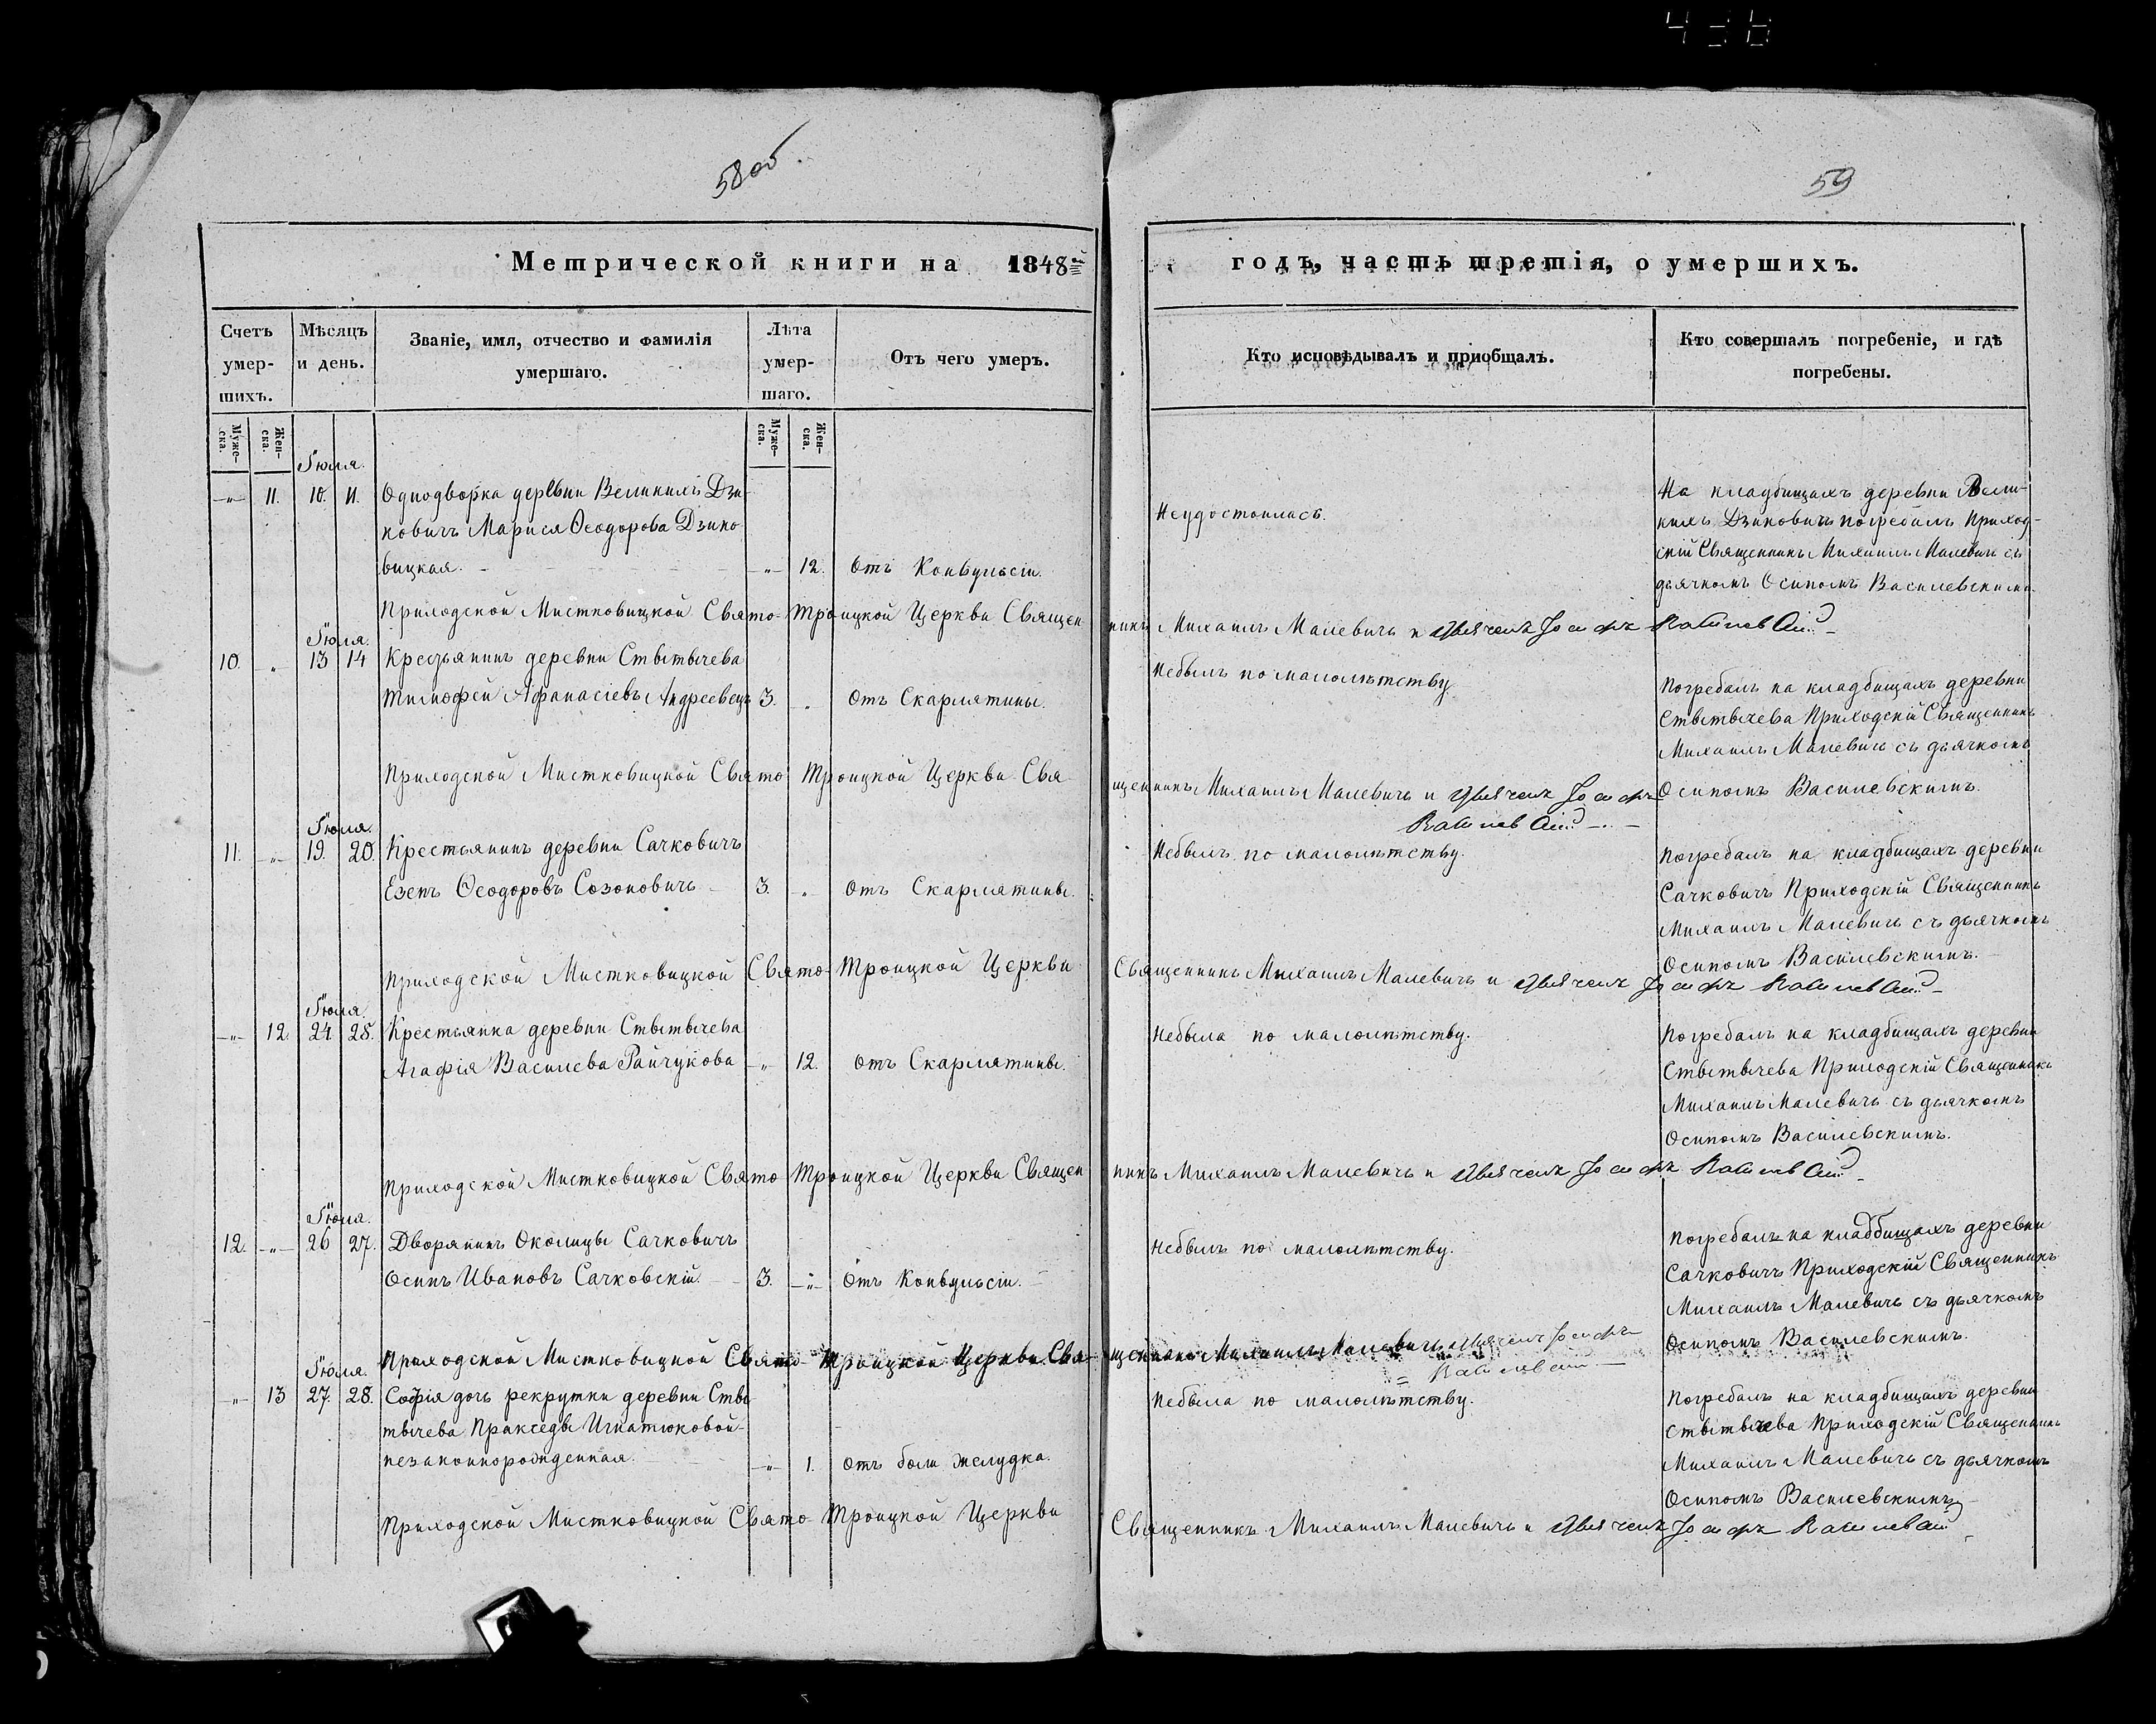 58 об.
59
Метрической книги на 1848й
годъ, часть третія, о умершихъ.
Счетъ умер-шихъ.
Мѣсяцъ и день.
Званіе, имя, отчество и фамилія умершаго.
Лѣта умер-шаго.
Отъ чего умеръ.
Кто исповѣдывалъ и приобщалъ.
Кто совершалъ погребеніе, и гдѣ погребены.
Муже-ска.
Жен-ска.
Муже-ска.
Жен-ска.
Іюля.
11. 10. 11. Однодворка деревни Великихъ Дзи-
ковичъ Марися Ѳеодорова Дзико
вицкая. 12. Отъ Конвульсіи.
Неудостоилась.
На кладбищахъ деревни Вели-
кихъ Дзиковичъ погребалъ Приход-
скій Священникъ Михаилъ Малевичъ съ
дьячкомъ Осипомъ Василевскимъ.
Приходской Мистковицкой Свято-Троицкой Церкви Священ
никъ Михаилъ Малевичъ и
Іюля.
10. 13 14 Крестьянинъ деревни Стытычева
Тимофей Афанасіевъ Андреевецъ 3. Отъ Скарлятины.
Небылъ по малолѣтству
Погребалъ на кладбищахъ деревни
Стытычева Приходскій Священникъ
Михаилъ Малевичъ съ дьячкомъ
Осипомъ Василевскимъ.
Приходской Мистковицкой Свято Троицкой Церкви Свя
щенникъ Михаилъ Малевичъ и
Іюля.
11. 19. 20. Крестьянинъ деревни Сачковичъ
Езепъ Ѳеодоровъ Созоновичъ 3. Отъ Скарлятины.
Небылъ по малолѣтству.
Погребалъ на кладбищахъ деревни
Сачковичъ Приходскій Священникъ
Михаилъ Малевичъ съ дьячкомъ
Осипомъ Василевскимъ.
Приходской Мистковицкой Свято-Троицкой Церкви
Священникъ Михаилъ Малевичъ и
Іюля.
12. 24 25. Крестьянка деревни Стытычева
Агафія Василева Райчукова 12. Отъ Скарлятины.
Небыла по малолѣтству.
Погребалъ на кладбищахъ деревни
Стытычева Приходскій Священникъ
Михаилъ Малевичъ съ дьячкомъ
Осипомъ Василевскимъ.
Приходской Мистковицкой Свято Троицкой Церкви Священ
никъ Михаилъ Малевичъ и
Іюля.
12. 26 27. Дворянинъ Околицы Сачковичъ
Осипъ Ивановъ Сачковскій. 3. Отъ Конвульсіи.
Небылъ по малолѣтству.
Погребалъ на кладбищахъ деревни
Сачковичъ Приходскій Священникъ
Михаилъ Малевичъ съ дьячкомъ
Осипомъ Василевскимъ.
Приходской Мистковицкой Свято-Троицкой Церкви Свя-
щенникъ Михаилъ Малевичъ
Іюля.
13 27. 28. Софія дочь рекрутки деревни Сты
тычева Пракседы Игнатюковой
незаконнорожденная. 1. Отъ боли желудка.
Небыла по малолѣтству.
Погребалъ на кладбищахъ деревни
Стытычева Приходскій Священникъ
Михаилъ Малевичъ съ дьячкомъ
Осипомъ Василевскимъ
Приходской Мистковицкой Свято-Троицкой Церкви
Священникъ Михаилъ Малевичъ и